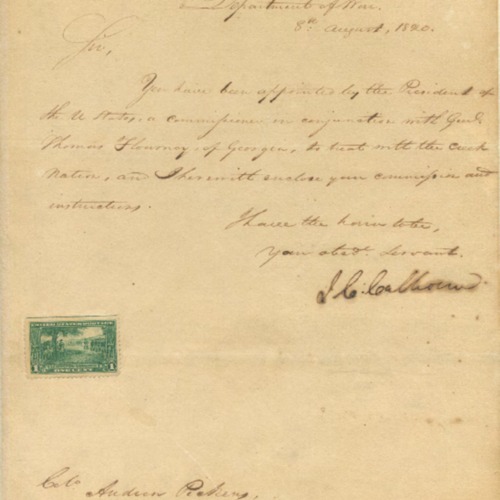 Department of War.
8th August, 1820.
Sir,
You have been appointed by the President of
the U States, a commissioner in conjunction with Genl.
Thomas Flournoy of Georgia, to treat with the Creek
Nation, and I herewith enclose your commission and
instructions.
I have the honor to be,
your obedt. servant.
J. C. Calhoun
1 1
Andrew Pickens,